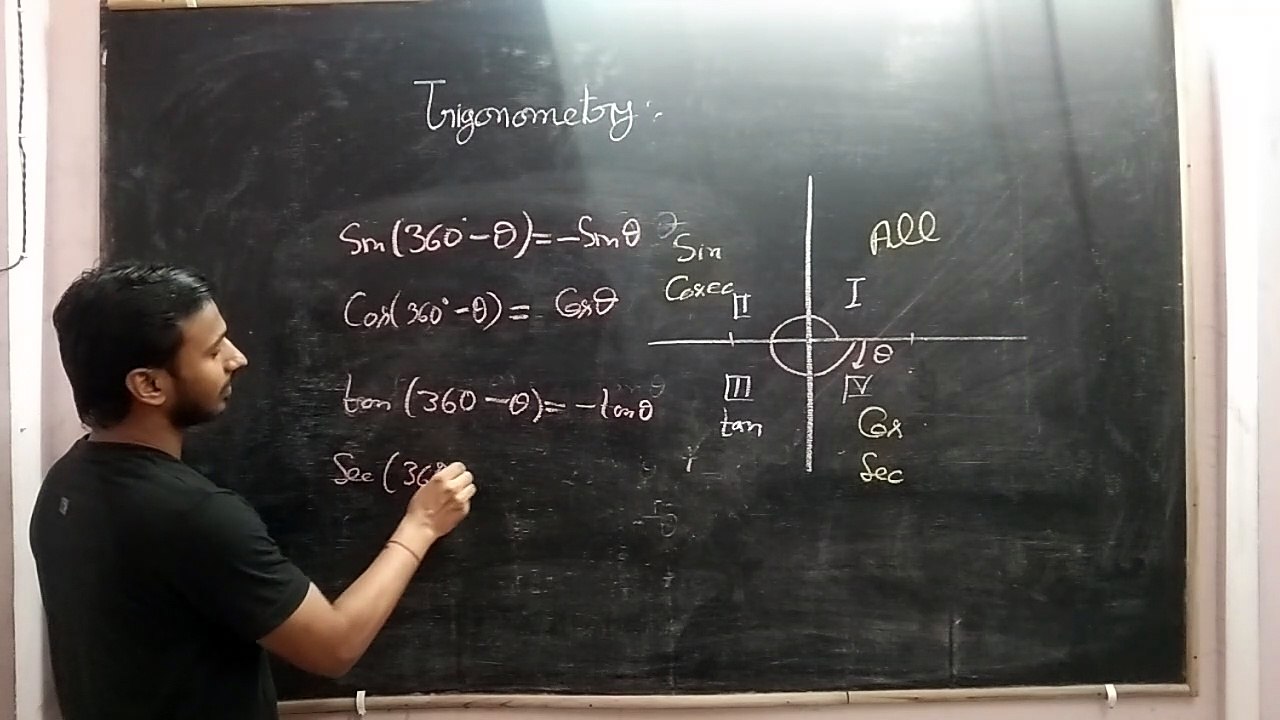 Trigonometry :-
Sin (360° - θ) = - Sin θ
Cos (360° - θ) = Cos θ
tan (360 - θ) = - tan θ
Sec (360
Sin
Cosec
II
All
I
θ
III
tan
IV
Cos
Sec